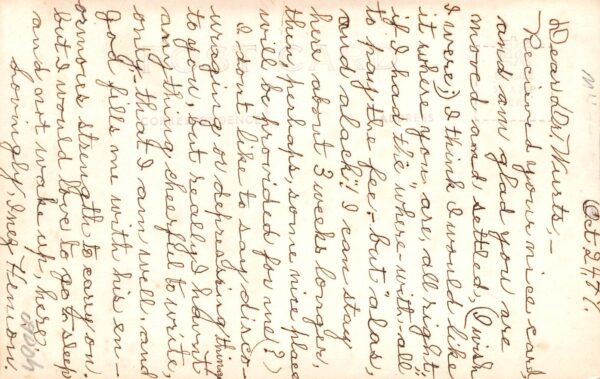 Oct 24,
Dear Dr. Wurts,—
Received your nice card
and am glad you are
moved and settled, (I wish
I were;) I think I would like
it where you are, all right,
if I had "the "where-with-all"
to pay the fee;- but "alas,
and alack"! I can stay
here about 3 weeks longer,
then, perhaps, some nice place
will be provided for me(?)
I don't like to say disco-
uraging or depressing things
to you, but really I haven't
anything cheerful to write,
only- that I am well, and
God fills me with his en-
ormous strength to carry on.
but I would love to go to sleep
and not wake up, here.
Lovingly Inez
POST CARD
CORRESPONDENCE
ADDRESS